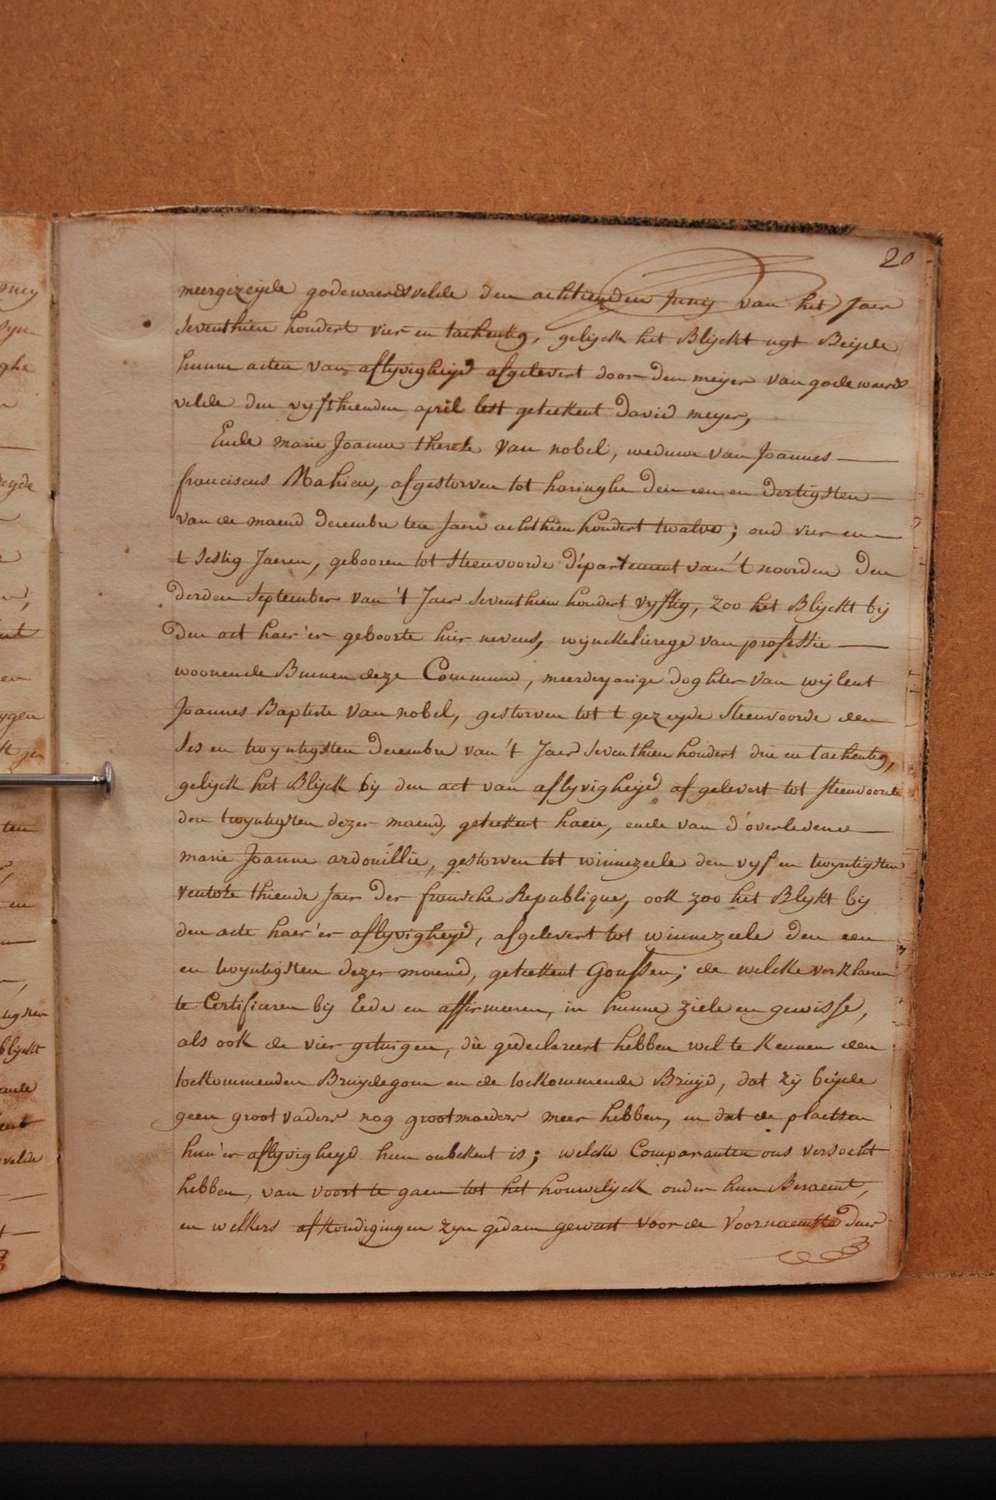 20
meergezeyde godewaersvelde den achtienden Juny van het Jaer
Seventhien hondert vier en tachentig, gelijck het Blijckt uyt Beijde
hunne acten van aflyvigheijd afgelevert door den meijer van godewaers
velde den vyfthienden april lest geteekent david meyer,
Ende marie Joanne therese van nobel, weduwe van Joannes
franciscus Mahieu, afgestorven tot haringhe den een en dertigsten
van de maend december ten Jaere achthien hondert twalve; oud vier en
t sestig Jaeren, gebooren tot Steenvoorde département van 't noorden den
derden September van 't Jaer Seventhien hondert vyftig, zoo het Blijckt bij
den act haer'er geboorte hier nevens, wijnckelierege van professie
woonende Binnen deze Commune, meerderjarige doghter van wijlent
Joannes Baptiste van nobel, gestorven tot t gezeyde Steenvoorde den
Ses en twyntigsten december van 't Jaer Seventhien hondert drie en tachentig,
gelijck het Blijck bij den act van aflyvigheijd afgelevert tot Steenvoorde
den twyntigsten dezer maend, geteekent haeu, ende van d'overledene
marie Joanne ardouillie, gestorven tot winnezeele den vyf en twyntigsten
ventose thiende Jaer der fransche Republique, ook zoo het Blijkt bij
den acte haer'er aflyvigheyd, afgelevert tot winnezeele den een
en twyntigsten dezer maend, geteekent Goussen; de welcke verklaeren
te Certifieeren bij Eede en affirmeeren, in hunne ziele en gewisse,
als ook de vier getuigen, die gedeclareert hebben wel te kennen den
toekommenden Bruydegom en de toekommende Bruyd, dat zij beijde
geen grootvaders nog grootmoeders meer hebben, en dat de plaetsen
hun'er aflyvigheyd hun onbekent is; welcke Comparanten ons versocht
hebben, van voort te gaen tot het houwelijck onder hun Beraemt,
en welkers afkondigingen zyn gedaen gewist voor de Voornaemste deur